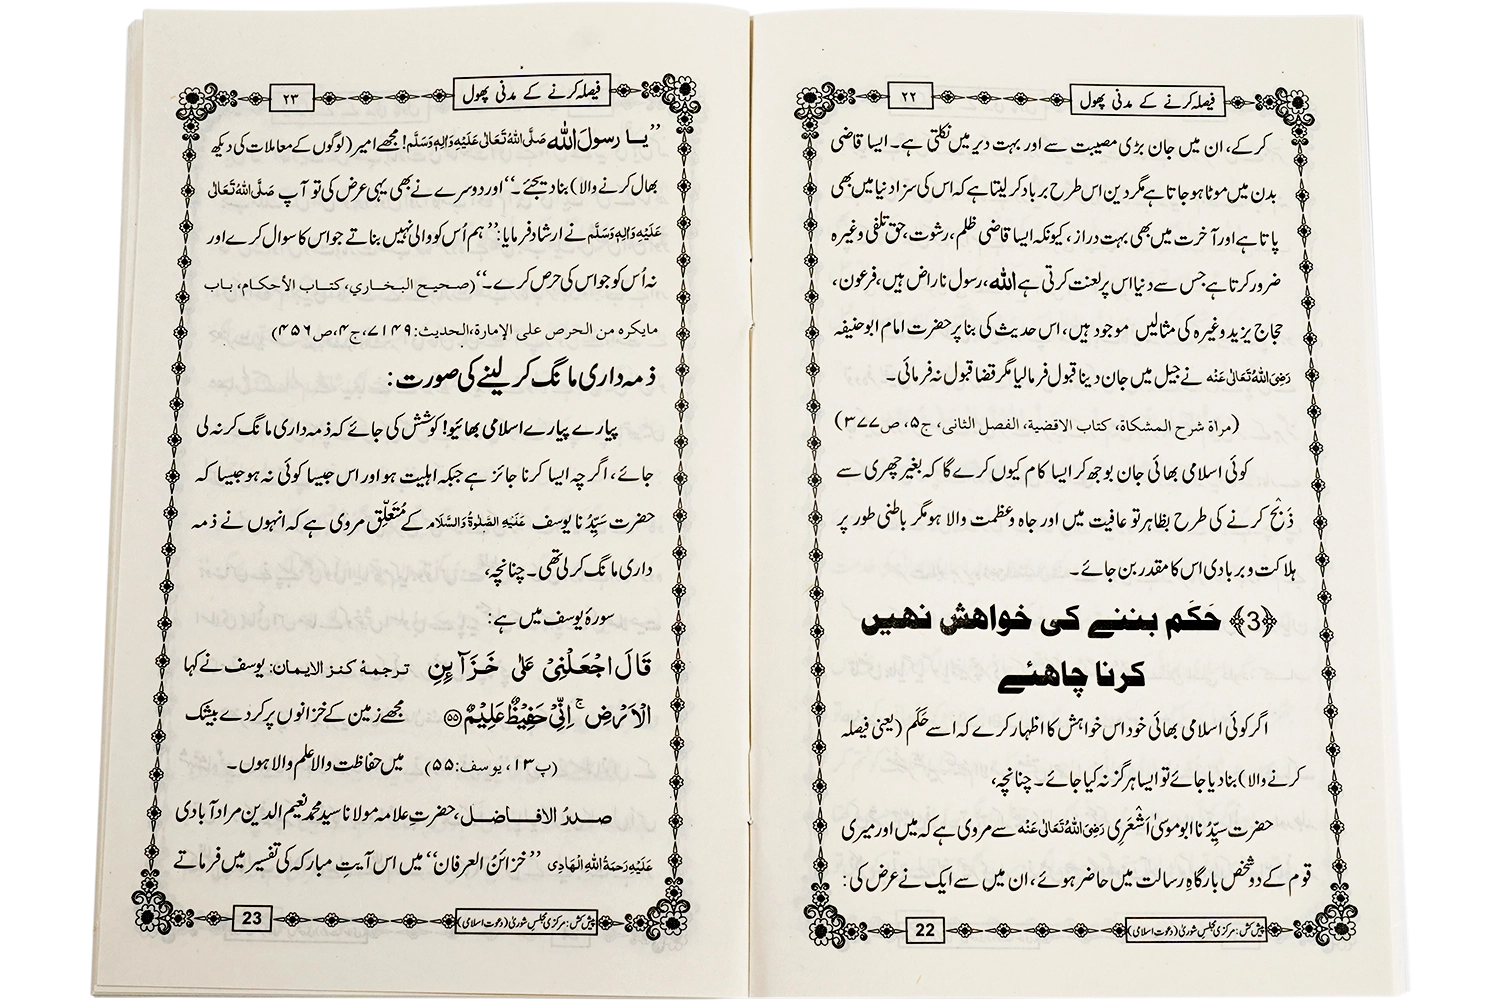 فیصلہ کرنے کے مدنی پھول
۲۲
کرکے، ان میں جان بڑی مصیبت سے اور بہت دیر میں نکلتی ہے۔ ایسا قاضی
بدن میں موٹا ہو جاتا ہے مگر دین اس طرح برباد کر لیتا ہے کہ اس کی سزا دنیا میں بھی
پاتا ہے اور آخرت میں بھی بہت دراز، کیونکہ ایسا قاضی ظلم، رشوت، حق تلفی وغیرہ
ضرور کرتا ہے جس سے دنیا اس پر لعنت کرتی ہے اللہ، رسول ناراض ہیں، فرعون،
حجاج یزید وغیرہ کی مثالیں موجود ہیں، اس حدیث کی بنا پر حضرت امام ابو حنیفہ
رَضِیَ اللہُ تَعَالٰی عَنْہ نے جیل میں جان دینا قبول فرمالیا مگر قضا قبول نہ فرمائی۔
(مراۃ شرح المشکاۃ، کتاب الاقضیۃ، الفصل الثانی، ج۵، ص۳۷۷)
کوئی اسلامی بھائی جان بوجھ کر ایسا کام کیوں کرے گا کہ بغیر چھری سے
ذَبْح کرنے کی طرح بظاہر تو عافیت میں اور جاہ و عظمت والا ہو مگر باطنی طور پر
ہلاکت و بربادی اس کا مقدر بن جائے۔
﴿3﴾ حَکَم بننے کی خواھش نھیں
کرنا چاھئے
اگر کوئی اسلامی بھائی خود اس خواہش کا اظہار کرے کہ اسے حَکَم (یعنی فیصلہ
کرنے والا) بنادیا جائے تو ایسا ہرگز نہ کیا جائے۔ چنانچہ،
حضرت سیِّدُنا ابو موسیٰ اَشْعَرِی رَضِیَ اللہُ تَعَالٰی عَنْہ سے مروی ہے کہ میں اور میری
قوم کے دو شخص بارگاہِ رسالت میں حاضر ہوئے، ان میں سے ایک نے عرض کی:
پیش کش: مرکزی مجلس شوریٰ (دعوت اسلامی)
22
فیصلہ کرنے کے مدنی پھول
۲۳
”یا رسولَ اللہ صَلَّی اللہُ تَعَالٰی عَلَیْہِ وَاٰلِہٖ وَسَلَّم! مجھے امیر (لوگوں کے معاملات کی دیکھ
بھال کرنے والا) بنا دیجئے۔“ اور دوسرے نے بھی یہی عرض کی تو آپ صَلَّی اللہُ تَعَالٰی
عَلَیْہِ وَاٰلِہٖ وَسَلَّم نے ارشاد فرمایا: ”ہم اُس کو والی نہیں بناتے جو اس کا سوال کرے اور
نہ اُس کو جو اس کی حرص کرے۔“ (صحیح البخاري، کتاب الأحکام، باب
مایکرہ من الحرص علی الإمارۃ، الحدیث: ۷۱۴۹، ج۴، ص۴۵۶)
ذمہ داری مانگ کر لینے کی صورت:
پیارے پیارے اسلامی بھائیو! کوشش کی جائے کہ ذمہ داری مانگ کر نہ لی
جائے، اگرچہ ایسا کرنا جائز ہے جبکہ اہلیت ہو اور اس جیسا کوئی نہ ہو جیسا کہ
حضرت سیِّدُنا یوسف عَلَیْہِ الصَّلٰوۃُ وَالسَّلَام کے مُتَعَلِّق مروی ہے کہ انہوں نے ذمہ
داری مانگ کر لی تھی۔ چنانچہ،
سورۂ یوسف میں ہے:
قَالَ اجْعَلْنِیْ عَلٰی خَزَآئِنِ ترجمۂ کنز الایمان: یوسف نے کہا
الْاَرْضِ ۚ اِنِّیْ حَفِیْظٌ عَلِیْمٌ ﴿۵۵﴾ مجھے زمین کے خزانوں پر کردے بیشک
(پ۱۳، یوسف: ۵۵) میں حفاظت والا علم والا ہوں۔
صدرُ الافاضل، حضرتِ علامہ مولانا سید محمد نعیم الدین مرادآبادی
عَلَیْہِ رَحْمَۃُ اللہِ الْھَادِی ”خزائنُ العرفان“ میں اس آیتِ مبارکہ کی تفسیر میں فرماتے
پیش کش: مرکزی مجلس شوریٰ (دعوت اسلامی)
23